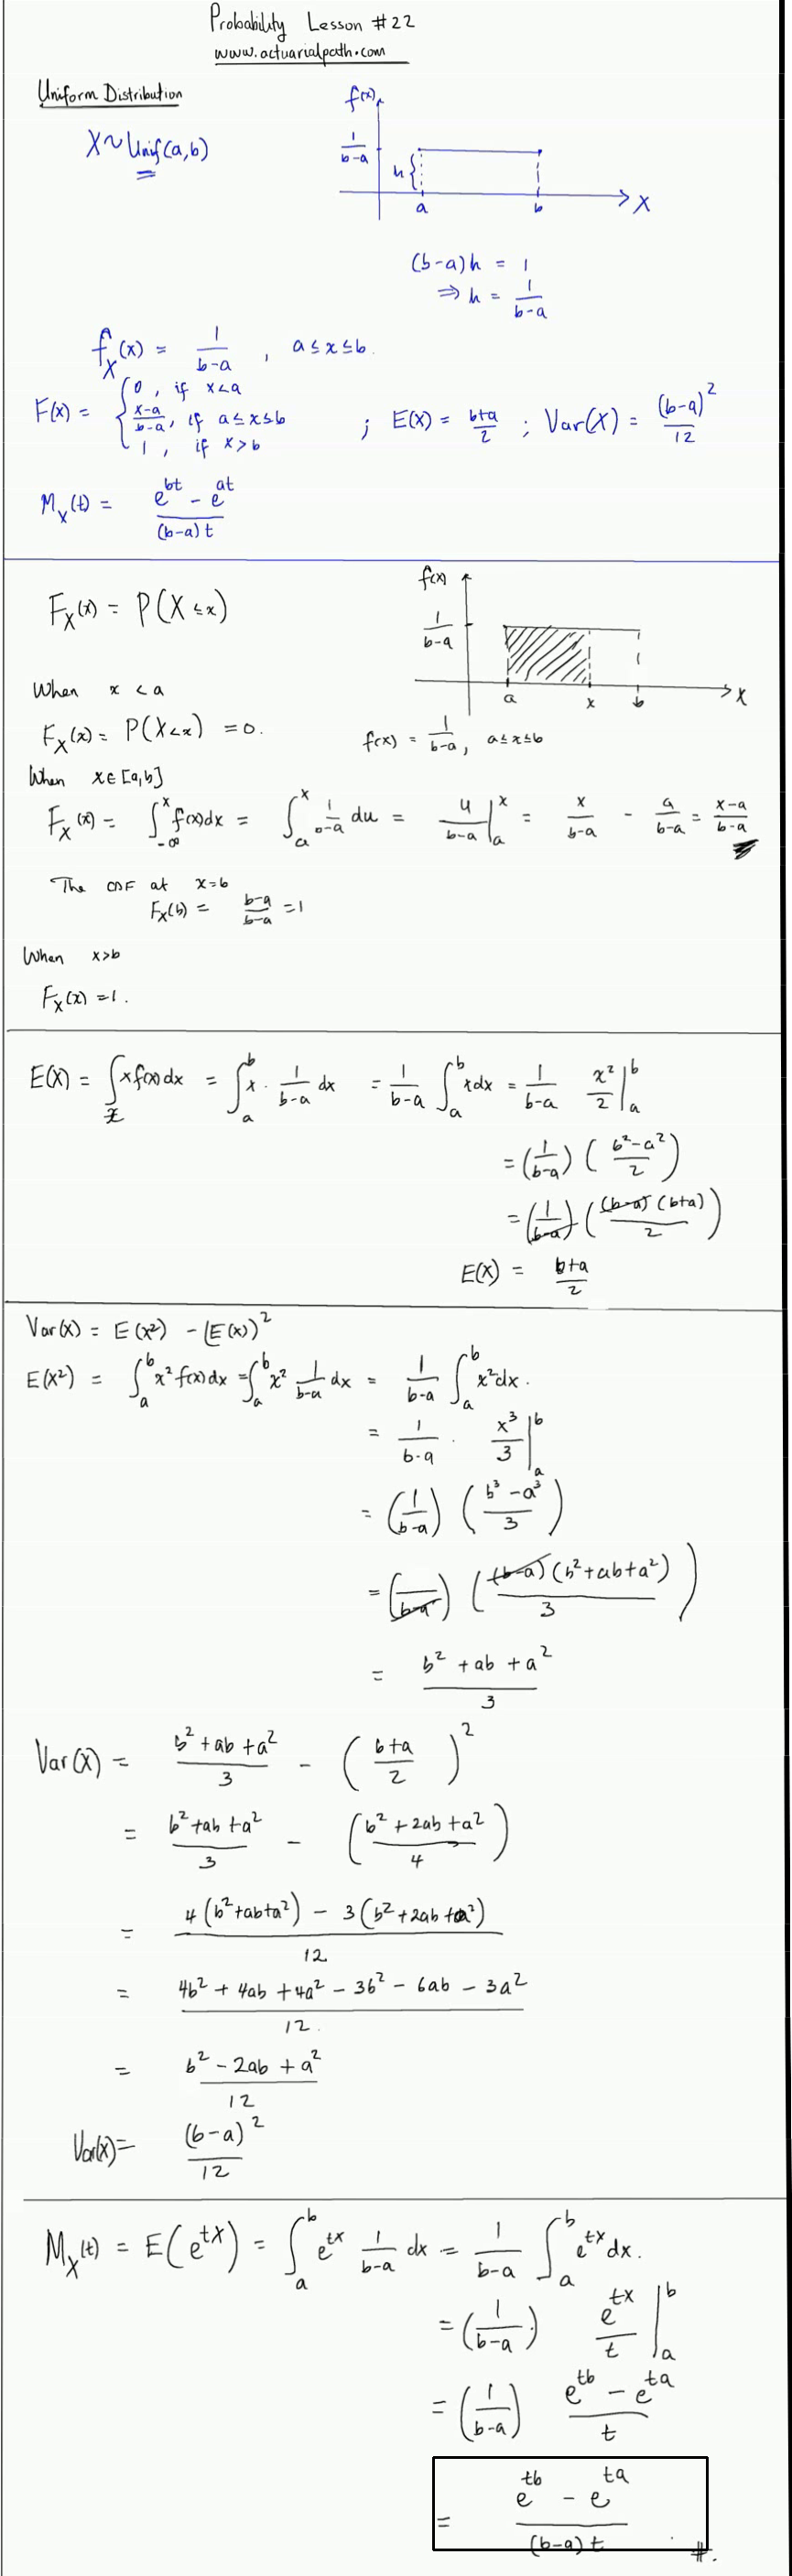 Probability Lesson #22
www.actuarialpath.com
Uniform Distribution
X ~ Unif(a,b)
f(x)
1/(b-a)
h{
a b X
(b-a)h = 1
⇒ h = 1/(b-a)
f_X(x) = 1/(b-a) , a ≤ x ≤ b.
F(x) = { 0 , if x<a
(x-a)/(b-a), if a ≤ x ≤ b
1 , if x > b
; E(X) = (b+a)/2 ; Var(X) = (b-a)^2/12
M_X(t) = (e^{bt} - e^{at})/((b-a)t)
F_X(x) = P(X ≤ x)
f(x)
1/(b-a)
a x b X
When x < a
F_X(x) = P(X<x) = 0.
f(x) = 1/(b-a), a ≤ x ≤ b
When x ∈ [a,b]
F_X(x) = ∫_{-∞}^{x} f(x)dx = ∫_a^x 1/(b-a) du = u/(b-a) |_a^x = x/(b-a) - a/(b-a) = (x-a)/(b-a)
The CDF at x=b
F_X(b) = (b-a)/(b-a) = 1
When x>b
F_X(x) = 1.
E(X) = ∫_x x f(x) dx = ∫_a^b x · 1/(b-a) dx = 1/(b-a) ∫_a^b x dx = 1/(b-a) x^2/2 |_a^b
= (1/(b-a)) ((b^2-a^2)/2)
= (1/(b-a)) ((b-a)(b+a)/2)
E(X) = (b+a)/2
Var(X) = E(X^2) - (E(X))^2
E(X^2) = ∫_a^b x^2 f(x) dx = ∫_a^b x^2 1/(b-a) dx = 1/(b-a) ∫_a^b x^2 dx.
= 1/(b-a) · x^3/3 |_a^b
= (1/(b-a)) ((b^3 - a^3)/3)
= (1/(b-a)) ((b-a)(b^2+ab+a^2)/3)
= (b^2 + ab + a^2)/3
Var(X) = (b^2 + ab + a^2)/3 - ((b+a)/2)^2
= (b^2 + ab + a^2)/3 - ((b^2 + 2ab + a^2)/4)
= (4(b^2+ab+a^2) - 3(b^2+2ab+a^2))/12
= (4b^2 + 4ab + 4a^2 - 3b^2 - 6ab - 3a^2)/12.
= (b^2 - 2ab + a^2)/12
Var(X) = (b-a)^2/12
M_X(t) = E(e^{tX}) = ∫_a^b e^{tx} 1/(b-a) dx = 1/(b-a) ∫_a^b e^{tx} dx.
= (1/(b-a)) e^{tx}/t |_a^b
= (1/(b-a)) (e^{tb} - e^{ta})/t
= (e^{tb} - e^{ta})/((b-a)t) #.